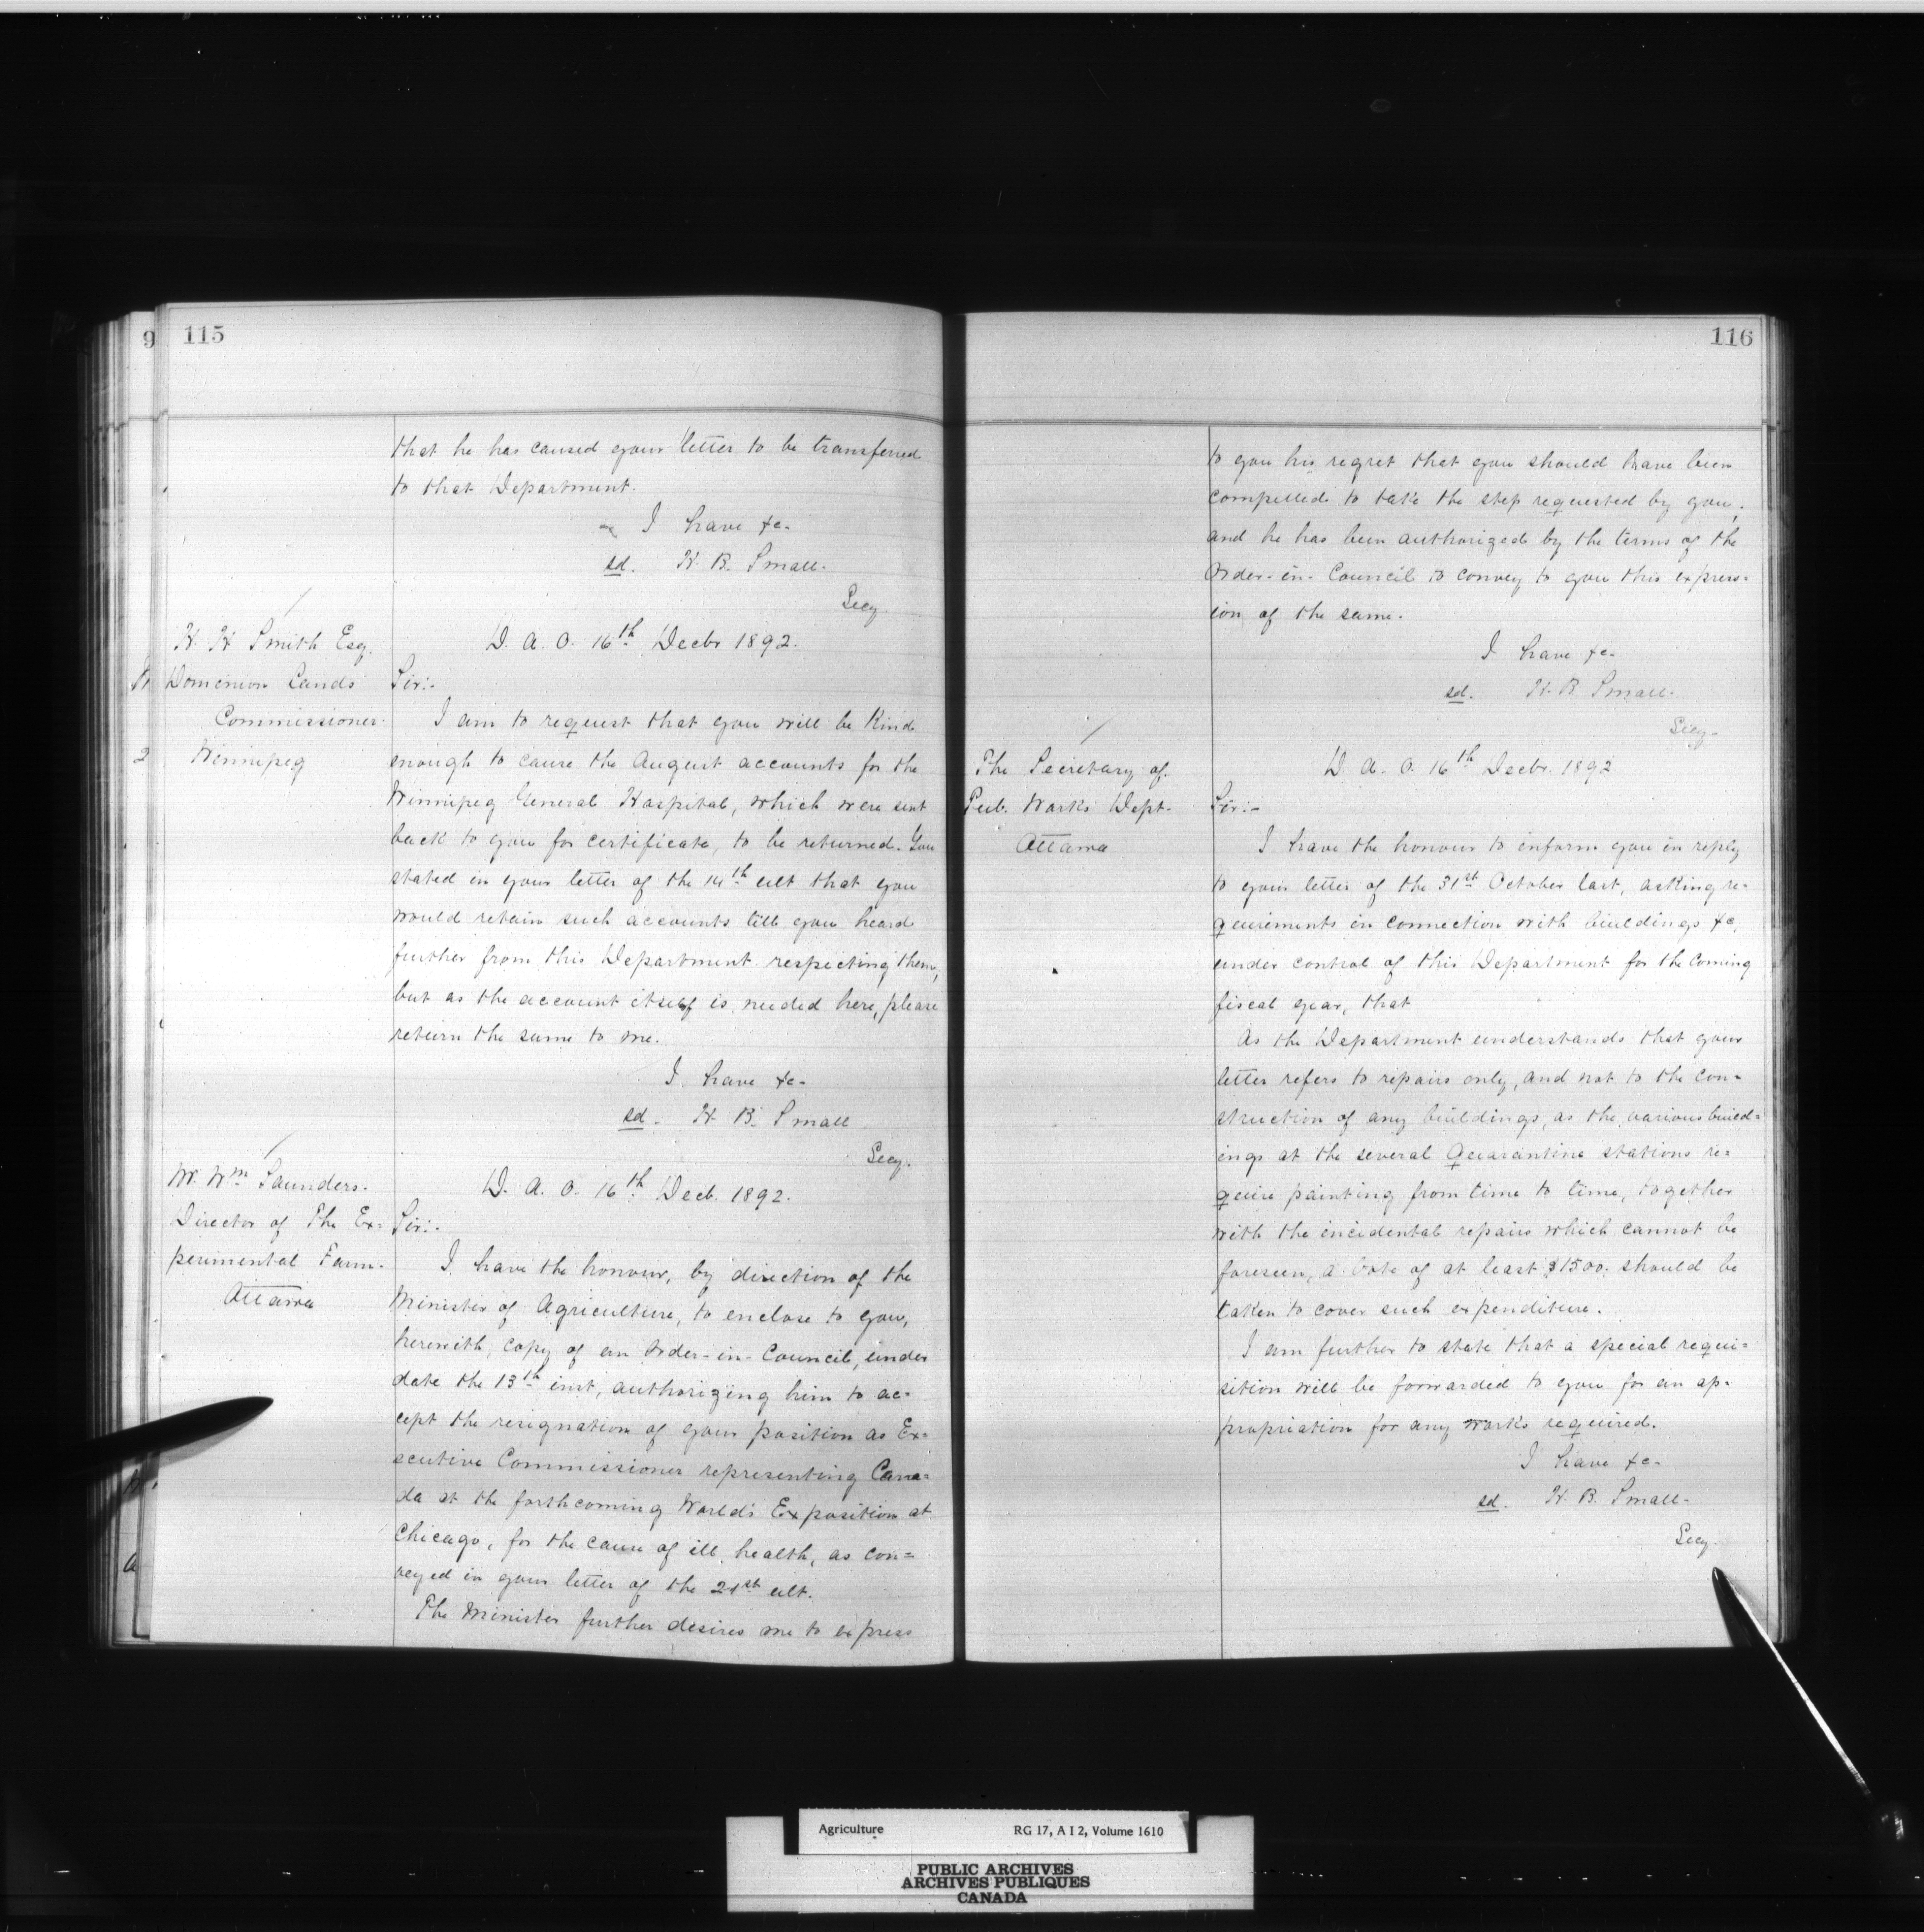 9
115
that he has caused your letter to be transferred
to that Department.
I have &c-
sd. H. B. Small.
Secy.
H. H. Smith Esq.
Dominion Lands
Commissioner.
Winnipeg
D. A. O. 16th Decbr 1892.
Sir:-
I am to request that you will be kind
enough to cause the August accounts for the
Winnipeg General Hospital, which were sent
back to you for certificate, to be returned. You
stated in your letter of the 14th ult that you
would retain such accounts till you heard
further from this Department respecting them,
but as the account itself is needed here, please
return the same to me.
I have &c-
sd. H. B. Small
Secy.
Mr. Wm Saunders.
Director of The Ex=
perimental Farm.
Ottawa
D. A. O. 16th Decb. 1892.
Sir:-
I have the honour, by direction of the
Minister of Agriculture, to enclose to you,
herewith, copy of an Order-in-Council, under
date the 13th inst, authorizing him to ac=
cept the resignation of your position as Ex=
ecutive Commissioner representing Cana=
da at the forthcoming World's Exposition at
Chicago, for the cause of ill health, as con=
veyed in your letter of the 21st ult.
The Minister further desires me to express
116
to you his regret that you should have been
compelled to take the step requested by you,
and he has been authorized by the terms of the
Order-in-Council to convey to you this express=
ion of the same.
I have &c-
sd. H. B Small-
Secy-
The Secretary of
Pub. Works Dept.
Ottawa
D. A. O. 16th Decbr. 1892
Sir:-
I have the honour to inform you in reply
to your letter of the 31st October last, asking re=
quirements in connection with buildings &c,
under control of this Department for the coming
fiscal year, that
As the Department understands that your
letter refers to repairs only, and not to the con=
struction of any buildings, as the various build=
ings at the several Quarantine stations re=
quire painting from time to time, together
with the incidental repairs which cannot be
foreseen, a vote of at least $1500. should be
taken to cover such expenditure.
I am further to state that a special requi=
sition will be forwarded to you for an ap=
propriation for any works required.
I have &c-
sd. H. B. Small-
Secy.
Agriculture RG 17, A I 2, Volume 1610
PUBLIC ARCHIVES
ARCHIVES PUBLIQUES
CANADA